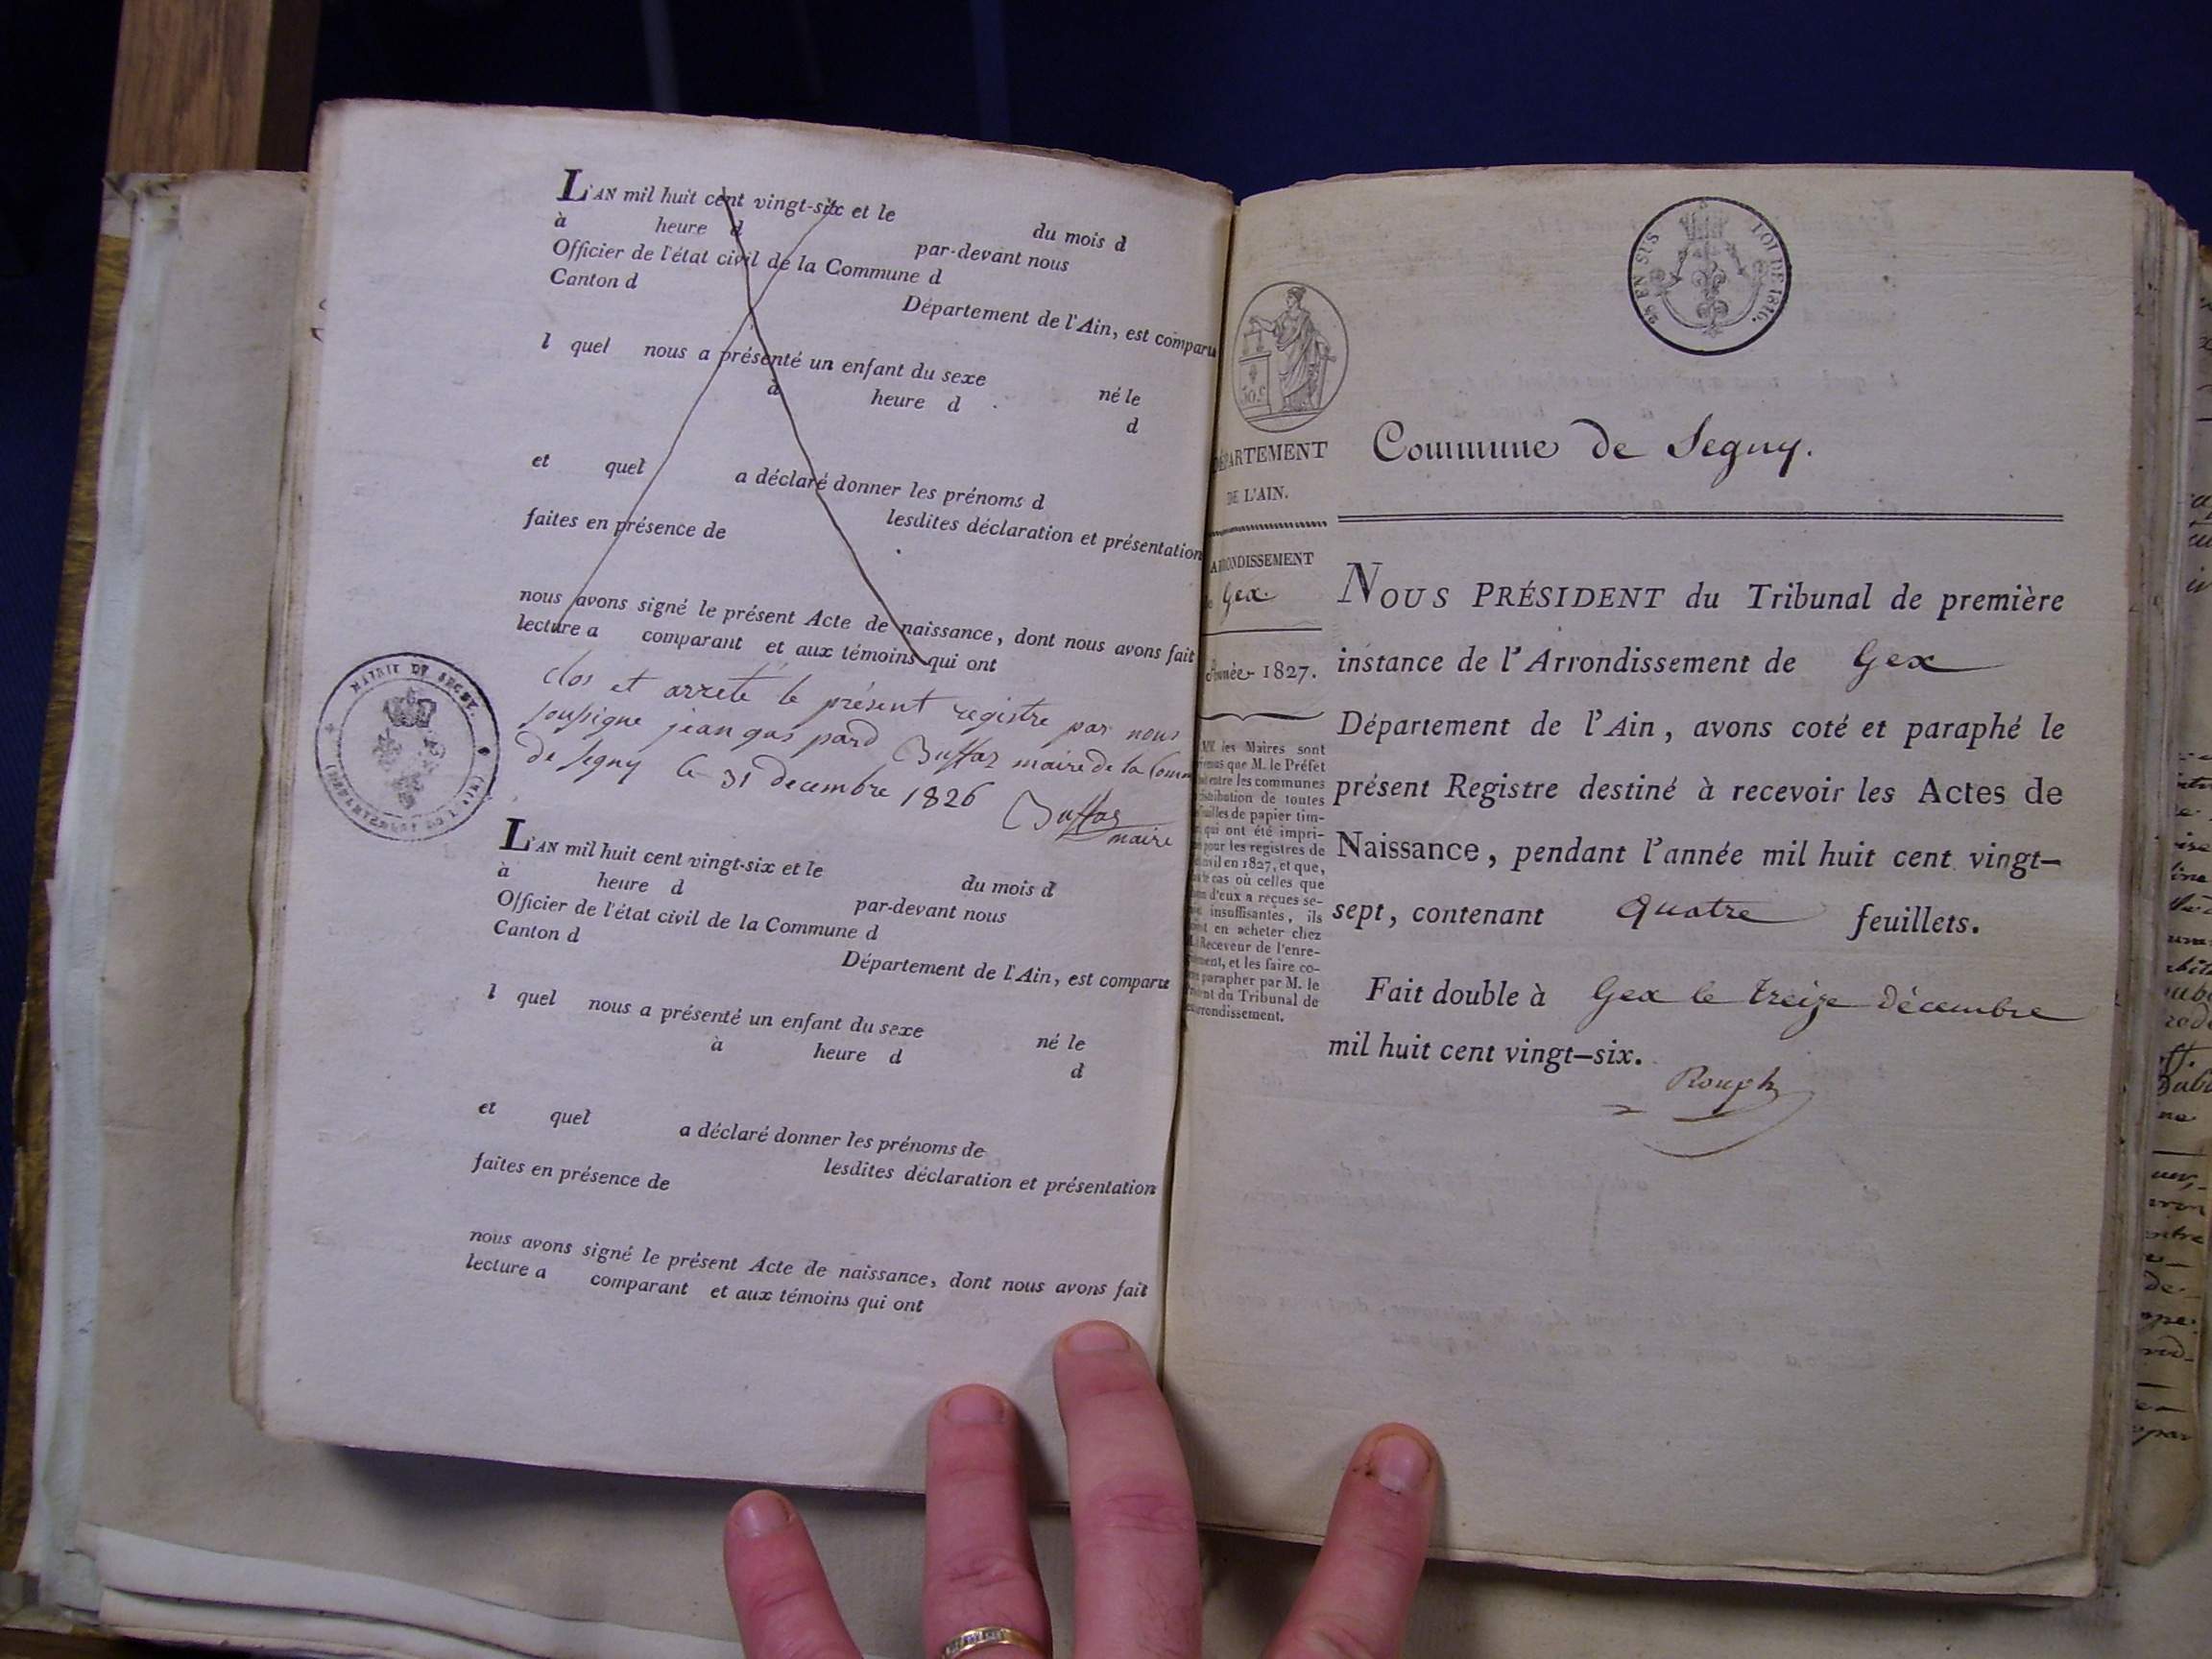 L'AN mil huit cent vingt-six et le du mois d
à heure d par-devant nous
Officier de l'état civil de la Commune d
Canton d
Département de l'Ain, est comparu
l quel nous a présenté un enfant du sexe né le
à heure d d
et quel a déclaré donner les prénoms d
lesdites déclaration et présentation
faites en présence de
nous avons signé le présent Acte de naissance, dont nous avons fait
lecture a comparant et aux témoins qui ont
clos et arreté le présent registre par nous
soussigne jean gaspard Buffaz maire de la Comm
de Segny le 31 decembre 1826
Buffaz
maire
MAIRIE DE SEGNY.
L'AN mil huit cent vingt-six et le du mois d
à heure d par-devant nous
Officier de l'état civil de la Commune d
Canton d
Département de l'Ain, est comparu
l quel nous a présenté un enfant du sexe né le
à heure d d
et quel a déclaré donner les prénoms de
lesdites déclaration et présentation
faites en présence de
nous avons signé le présent Acte de naissance, dont nous avons fait
lecture a comparant et aux témoins qui ont
EN SUS LOI DE 1816.
50c
DÉPARTEMENT
DE L'AIN.
ARRONDISSEMENT
de Gex.
Année 1827.
MM. les Maires sont
que M. le Préfet
entre les communes
distribution de toutes
feuilles de papier tim-
qui ont été impri-
pour les registres de
civil en 1827, et que,
cas où celles que
d'eux a reçues se-
insuffisantes, ils
en acheter chez
Receveur de l'enre-
et les faire co-
parapher par M. le
du Tribunal de
arrondissement.
Commune de Segny.
NOUS PRÉSIDENT du Tribunal de première
instance de l'Arrondissement de Gex
Département de l'Ain, avons coté et paraphé le
présent Registre destiné à recevoir les Actes de
Naissance, pendant l'année mil huit cent vingt-
sept, contenant quatre feuillets.
Fait double à Gex le treize Décembre
mil huit cent vingt-six.